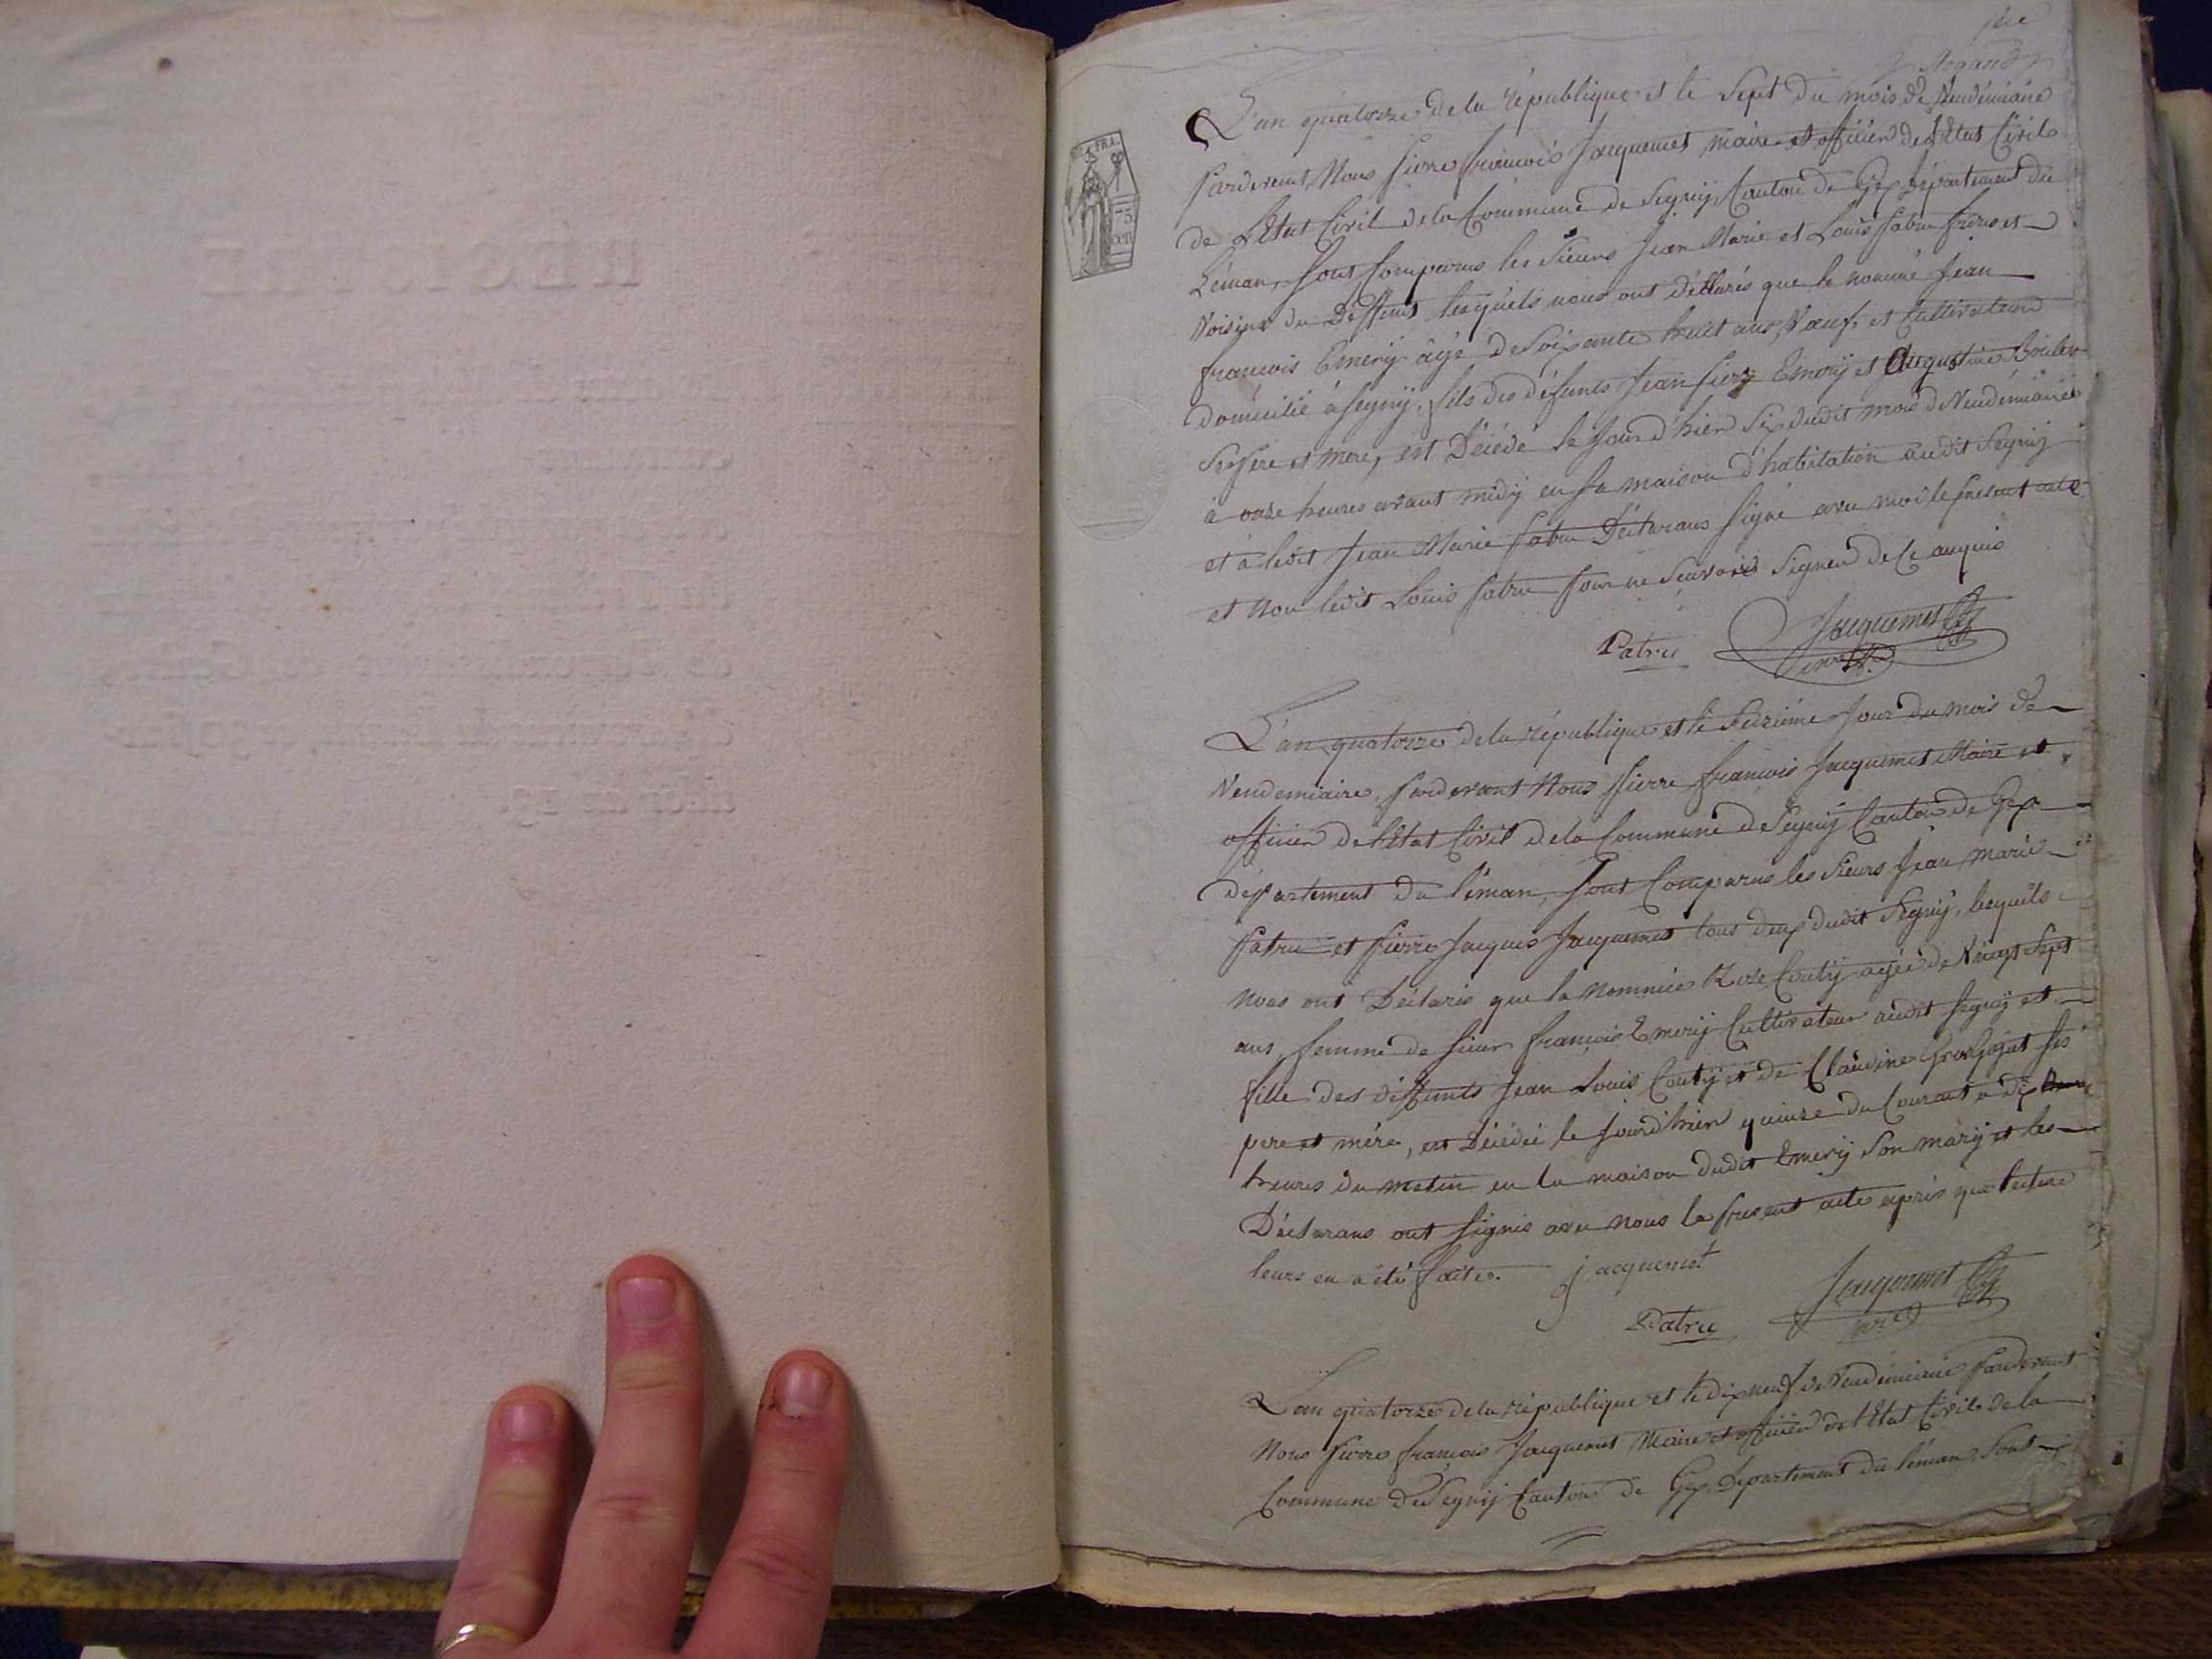 RÉGISTRE
1ere
Argand
L'an quatorze de la république et le Sept du mois de Vendémiaire
Pardevant Nous Pierre françois Jacquemet maire et officier de l'Etat Civil
de L'Etat Civil de la Commune de Segnÿ, Canton de Gex Département du
Léman, Sont Comparus les Sieurs Jean Marie et Louis Patru freres et
Voisins du Deffunt lesquels nous ont déclarés que le nommé Jean
francois Emerÿ âgé de Soixante huit ans, Veuf, et Cultivateur
domicilié à Segnÿ, fils des défunts Jean Pierre Emerÿ et Augustine
Ses Pere et mere, est Décédé le Jour d'hier Six dudit mois de Vendémiaire
à onze heures avant midÿ en Sa maison d'habitation audit Segnÿ
et a ledit Jean Marie Patru Déclarans Signé avec moi le présent acte
et non ledit Louis Patru pour ne Scavoir Signer de Ce enquis
Patru Jacquemet
L'an quatorze de la république et le Seizième Jour du mois de
Vendemiaire, Pardevant Nous Pierre françois Jacquemet Maire et
officier de l'Etat Civil de la Commune de Segnÿ Canton de Gex
département du Léman, Sont Comparus les Sieurs Jean Marie
Patru et Pierre Jacques Jacquemet tous deux dudit Segnÿ, lequels
nous ont Déclarés que la nommée Roze Coutÿ agée de Vingt Sept
ans, femme de Sieur françois Emerÿ Cultivateur audit Segnÿ et
fille des deffunts Jean Louis Coutÿ et de Claudine Grosgojat Ses
pere et mère, est Décédée le Jourd'hier quinze du Courant a dix
heures du matin en la maison dudit Emerÿ Son marÿ et les
Déclarans ont Signés avec nous le present acte après que lecture
leurs en a été faite. jacquemet
Patru Jacquemet
L'an quatorze de la république et le dix neuf de Vendémiaire Pardevant
Nous Pierre francois Jacquemet Maire et officier de l'Etat Civil de la
Commune de Segnÿ Canton de Gex, Département du Léman, Sont